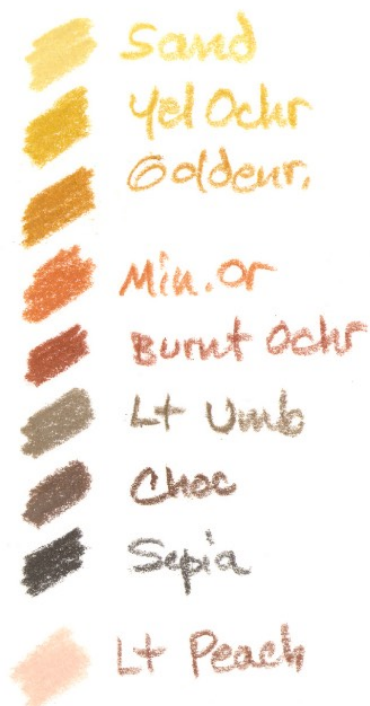 Sand
Yel Ochr
Goldenr.
Min. Or
Burnt Ochr
Lt Umb
Choc
Sepia
Lt Peach